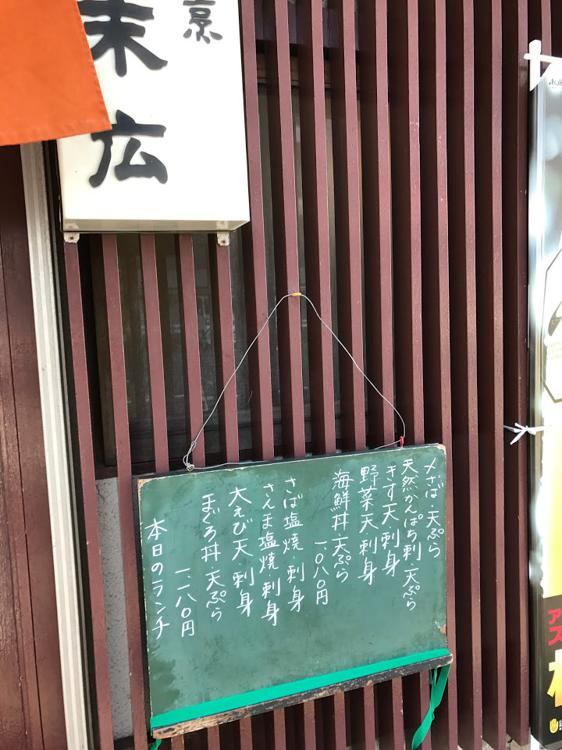 末広
〆さば・天ぷら
天然かんぱち刺・天ぷら
きす天 刺身
野菜天 刺身
海鮮丼・天ぷら
一.〇八〇円
さば塩焼・刺身
さんま塩焼 刺身
大えび天 刺身
まぐろ丼・天ぷら
一.二八〇円
本日のランチ